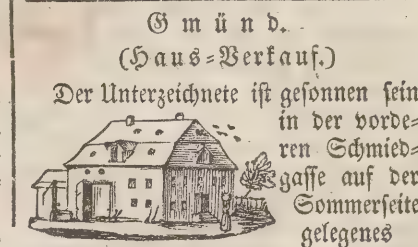 Gmünd.
(Haus=Verkauf.)
Der Unterzeichnete ist gesonnen sein
in der vorde=
ren Schmied=
gasse auf der
Sommerseite
gelegenes